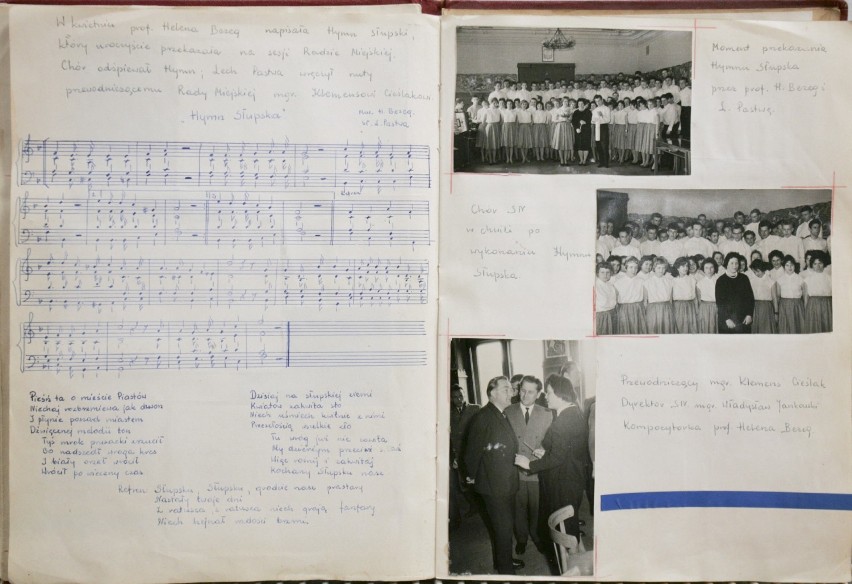 W kwietniu prof. Helena Bezeg napisała Hymn Słupski,
który uroczyście przekazała na sesji Radzie Miejskiej.
Chór odśpiewał Hymn; Lech Pastwa wręczył nuty
przewodniczącemu Rady Miejskiej mgr. Klemensowi Cieślakowi
„Hymn Słupska"
muz. H. Bezeg.
sł. L. Pastwa
Pieśń ta o mieście Piastów
Niechaj rozbrzmiewa jak dzwon
I płynie ponad miastem
Dźwięcznej melodii ton
Tyś mrok
Bo nadszedł wroga kres
I biały orzeł wrócił
Wrócił po wieczny czas
Dzisiaj na słupskiej ziemi
Kwiatów zakwita sto
Niech uśmiech
wielkie zło
Tu wróg już nie
My
Więc rośnij i zakwitaj
Kochany Słupsku nasz
Refren Słupsku, Słupsku, grodzie nasz prastary
Nastały twoje dni
Z ratusza niech grają fanfary
Niech
Moment przekazania
Hymnu Słupska
przez prof. H. Bezeg i
L. Pastwę.
Chór SN
w chwili po
wykonaniu Hymnu
Słupska
Przewodniczący mgr. Klemens Cieślak
Dyrektor SN mgr. Władysław Jankowski
Kompozytorka prof. Helena Bezeg.